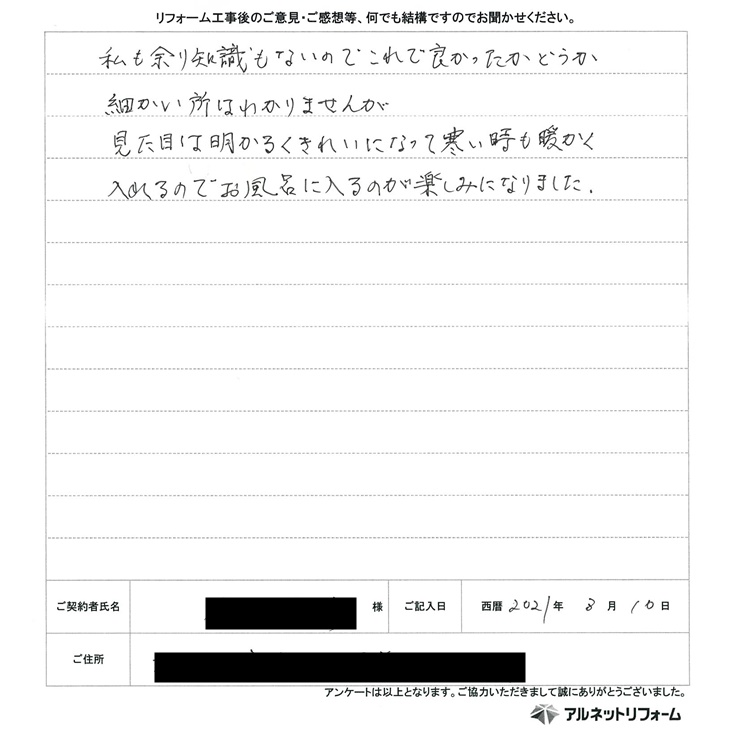 リフォーム工事後のご意見・ご感想等、何でも結構ですのでお聞かせください。
私も余り知識もないのでこれで良かったかどうか
細かい所はわかりませんが
見た目は明かるくきれいになって寒い時も暖かく
入れるのでお風呂に入るのが楽しみになりました.
ご契約者氏名 様 ご記入日 西暦 2021年 3月 10日
ご住所
アンケートは以上となります。ご協力いただきまして誠にありがとうございました。
アルネットリフォーム